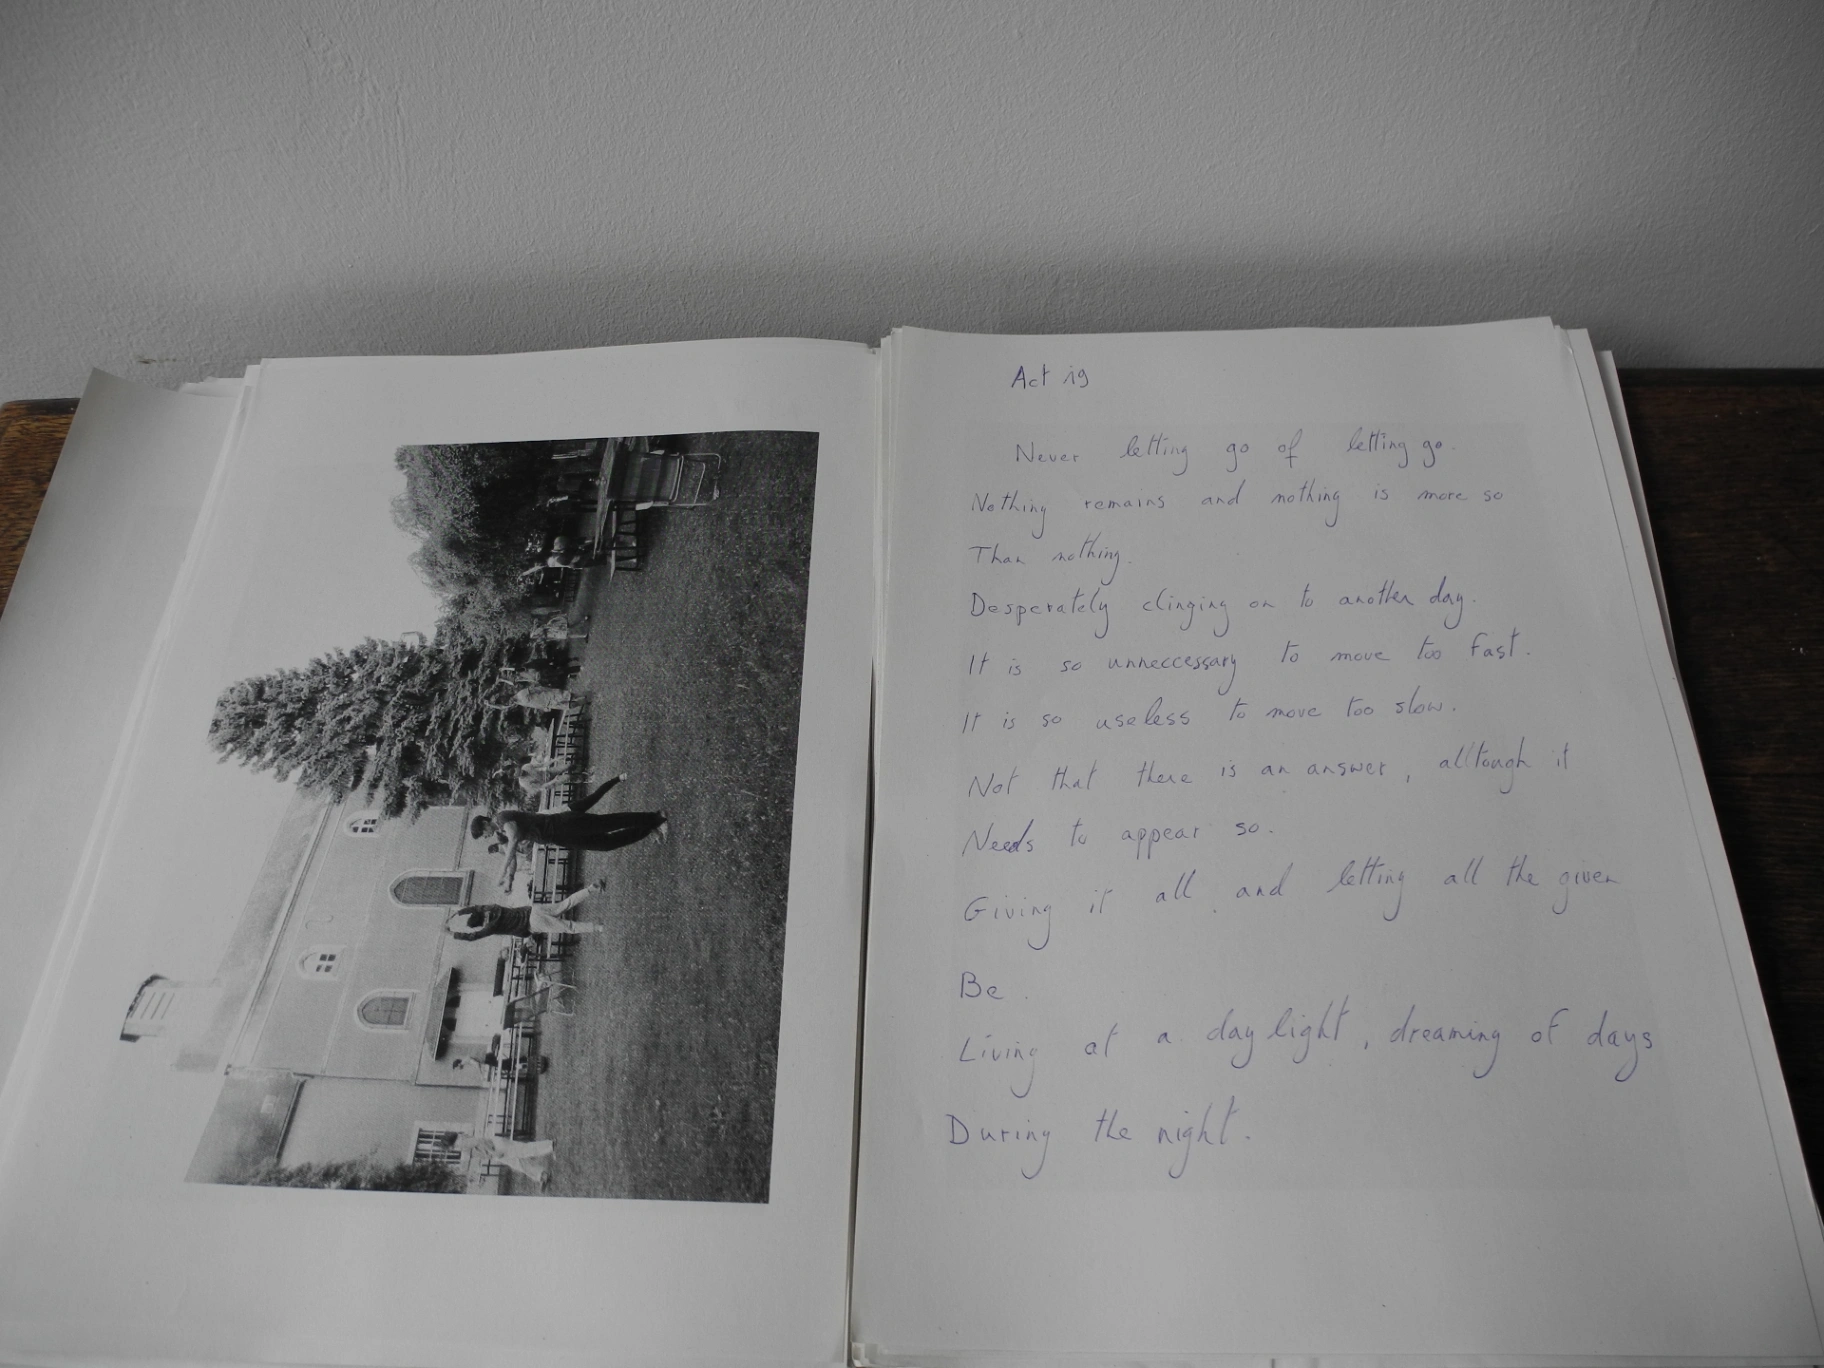 Act 19
Never letting go of letting go.
Nothing remains and nothing is more so
Than nothing.
Desperately clinging on to another day.
It is so unneccessary to move too fast.
It is so useless to move too slow.
Not that there is an answer, alltough it
Needs to appear so.
Giving it all and letting all the given
Be.
Living at a day light, dreaming of days
During the night.